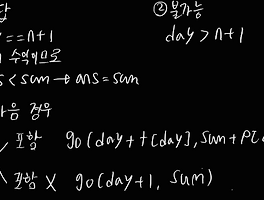 답
② 불가능
==n+1
day > n+1
수익이므로
< sum → ans = sum
경우
포함 go(day + t[day], sum + P[
포함 X go(day+1, sum)